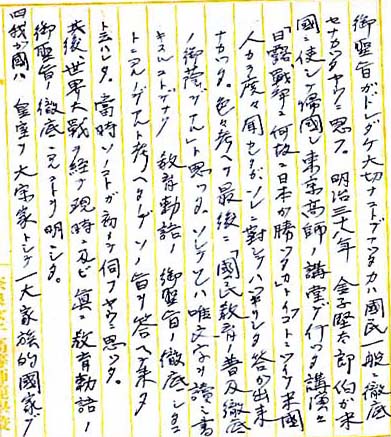 御聖旨ガドレダケ大切ナコトデアツタカハ國民一般ニ徹底
セナカツタヤウニ思フ。明治三十八年 金子堅太郎伯が米
國ニ使シテ帰國シ東京高師ノ講堂デ行ツタ講演ニ
「日露戰爭ニ何故ニ日本ガ勝ツタカトイフコトニツイテ米國
人カラ度々聞セラレタガソレニ對シテハツキリシタ答ガ出来
ナカツタ。色々考ヘテ最後ニ「國民教育ノ普及徹底
ノ御蔭デアル」ト思ツタ。ソレハ唯ニ讀ミ書
キスルコトデナク 教育勅語ノ御聖旨ノ徹底シタコ
トニアルノデアルト考ヘタノデソノ旨ヲ答ヘテ来タ
ト云ハレタ。當時ソノコトガ初メテ伺フヤウニ思ツタ。
其後世界大戰ヲ経テ現時ニ及ビ真ニ教育勅語ノ
御聖旨ノ徹底シタコトヲ明シタ。
四我が國ハ 皇室ヲ大宗家トシテ一大家族的國家ヲ